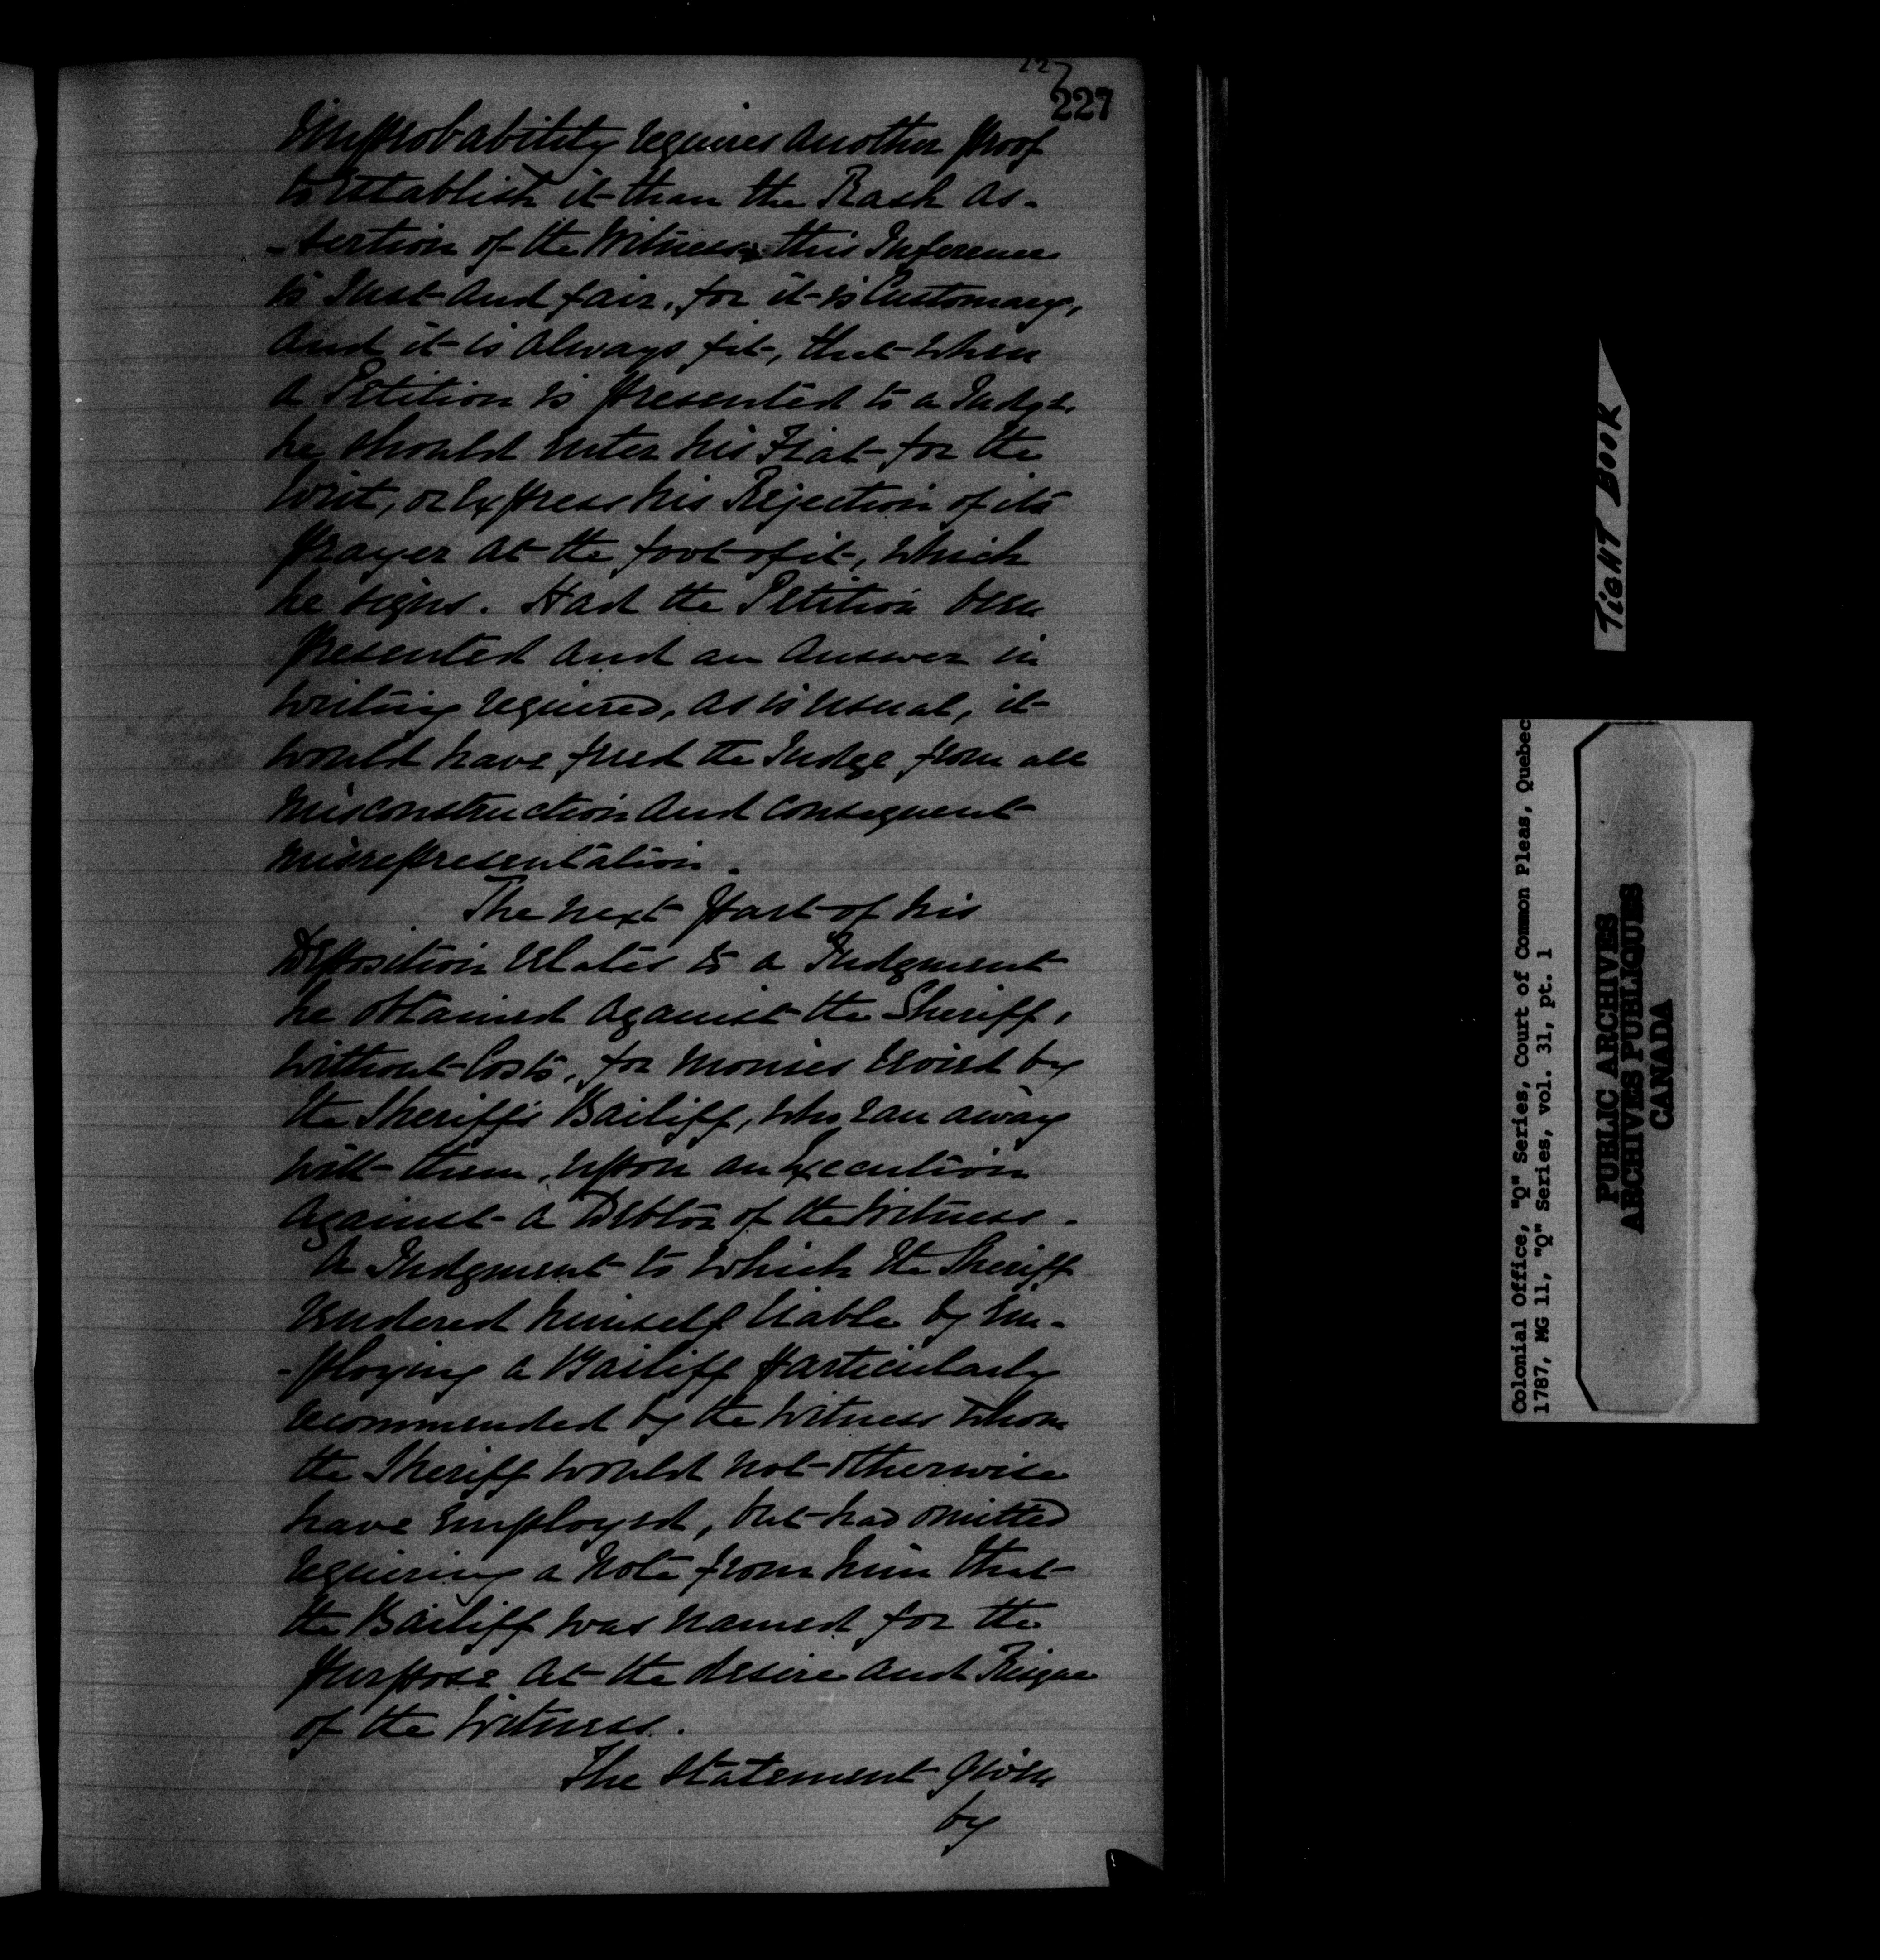 227
227
Improbability requires another proof
to establish it than the Rash as-
-sertion of the Witness, this Inference
is Just and fair, for it is Customary,
And it is always fit, that when
a Petition is presented to a Judge
he should enter his Fiat for the
Writ, or Express his Rejection of its
prayer at the foot of it, which
he signs. Had the Petition been
presented and an Answer in
writing required, as is usual, it
would have freed the Judge from all
Misconstruction and consequent
Misrepresentation.
The next part of his
Deposition relates to a Judgment
he obtained against the Sheriff,
without Costs, for monies levied by
the Sheriff's Bailiff, who ran away
with them, upon an Execution
Against a Debtor of the Witness.
A Judgment to which the Sheriff
rendered himself liable by Em-
-ploying a Bailiff particularly
recommended by the Witness whom
the Sheriff would not otherwise
have Employed, but had omitted
requiring a Note from him that
the Bailiff was named for the
purpose at the desire and Risque
of the Witness.
The Statement given
by
TIGHT BOOK
Colonial Office, "Q" Series, Court of Common Pleas, Quebec
1787, MG 11, "Q" Series, vol. 31, pt. 1
PUBLIC ARCHIVES
ARCHIVES PUBLIQUES
CANADA